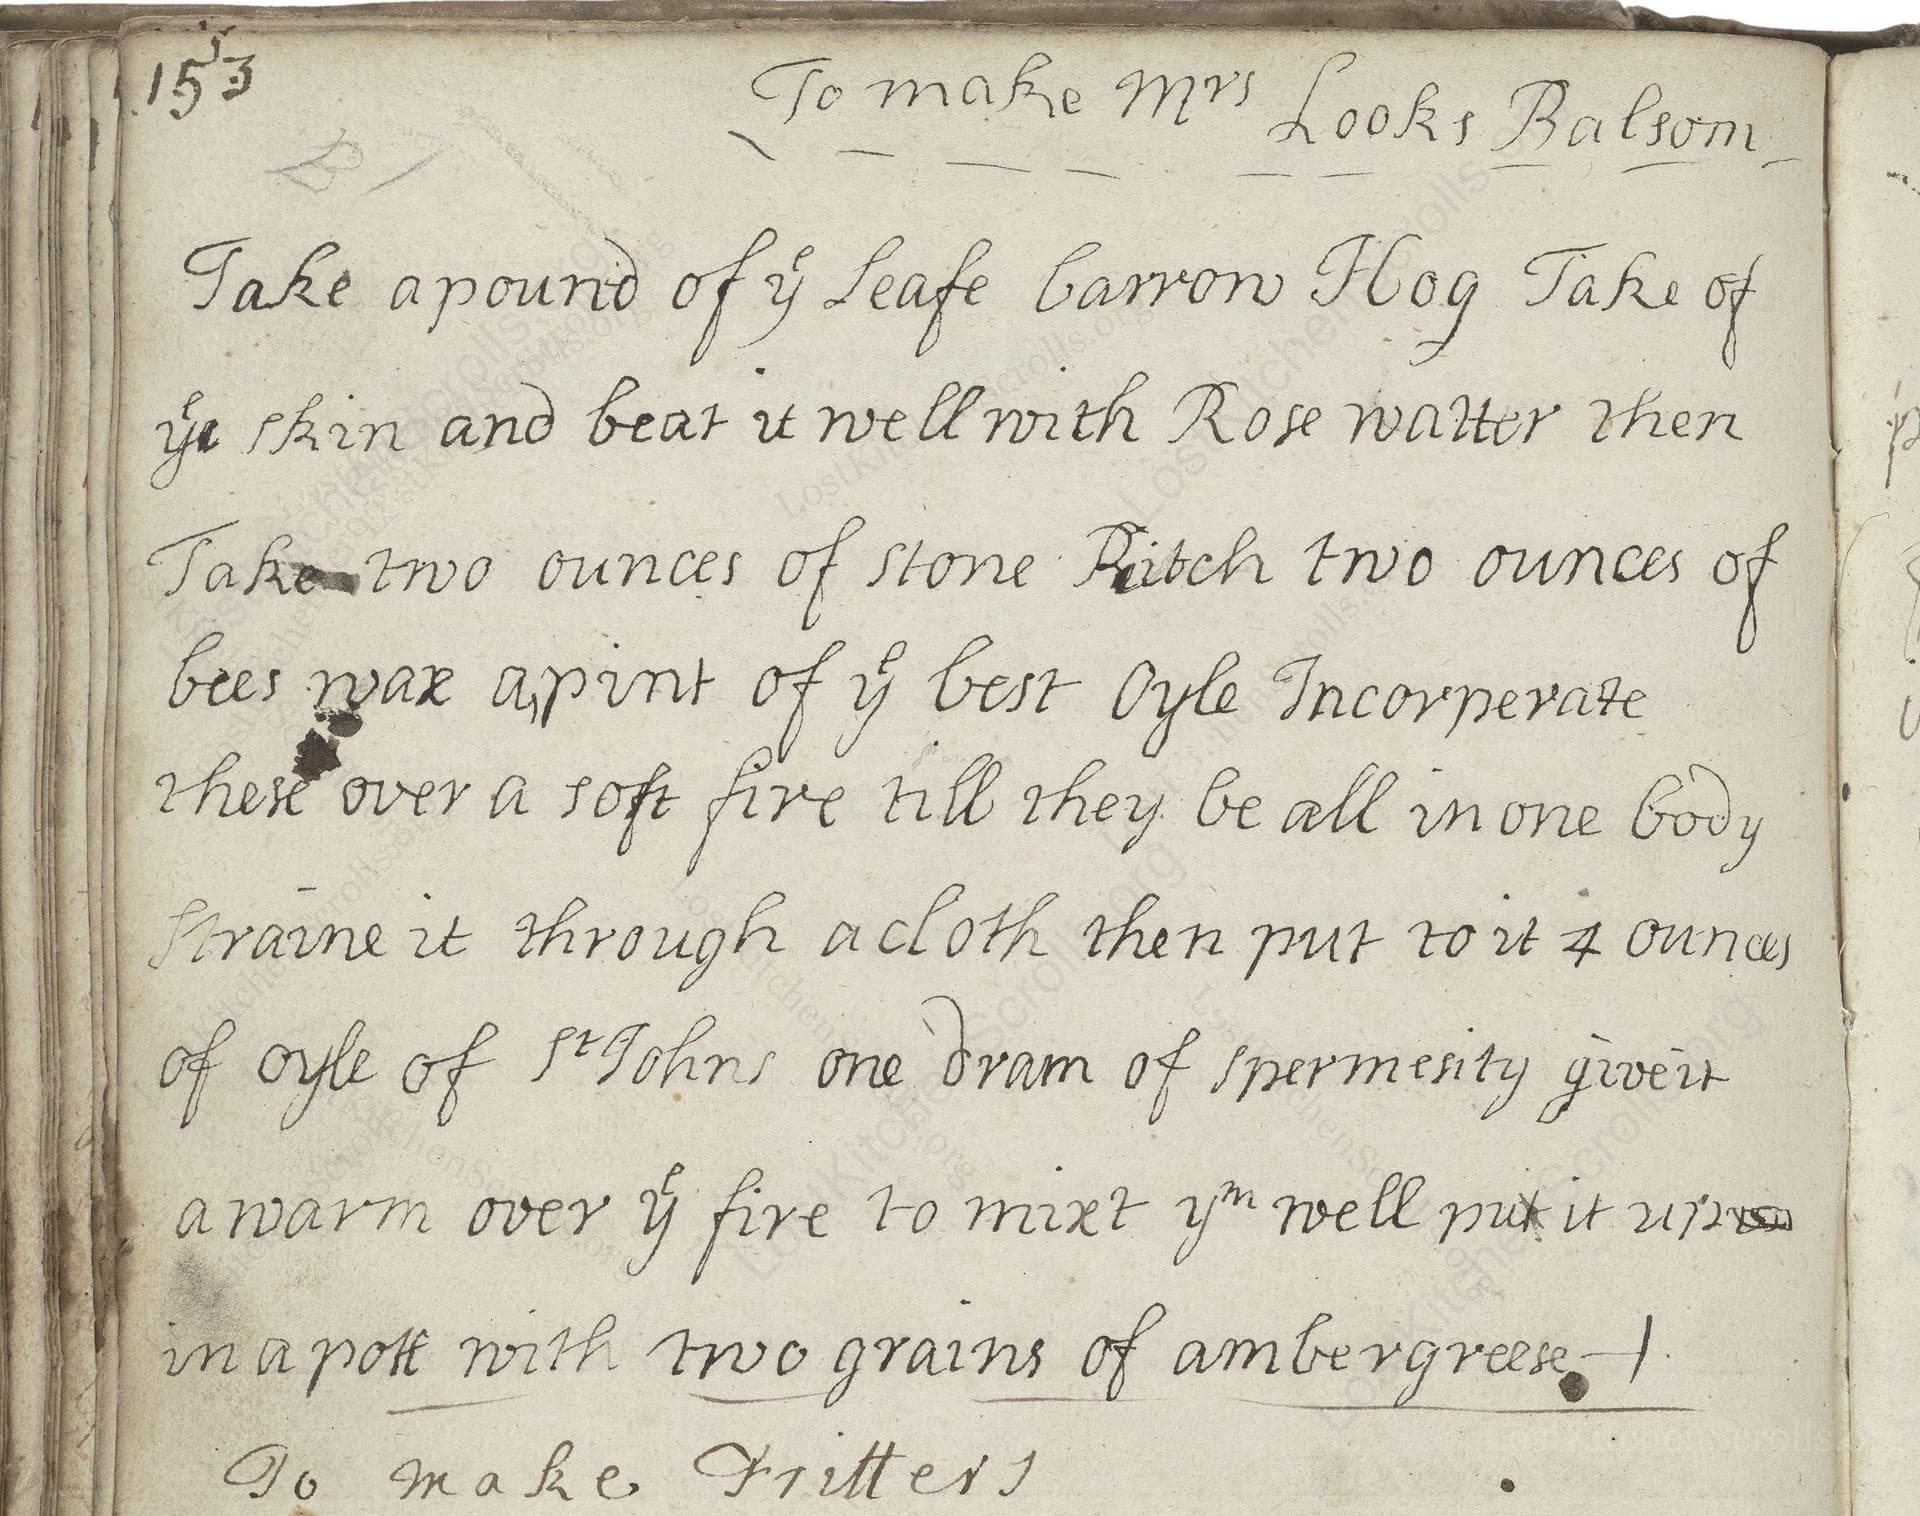 153
To make Mrs Looks Balsom
Take a pound of ye Leafe barron Hog Take of
ye skin and beat it well with Rose watter then
Take two ounces of stone Pitch two ounces of
bees wax a pint of ye best Oyle Incorperate
these over a soft fire till they be all in one body
straine it through a cloth then put to it 4 ounces
of oyle of St Johns one dram of spermesity give it
a warm over ye fire to mixt ym well put it up
in a pott with two grains of ambergreese
To make Fritters